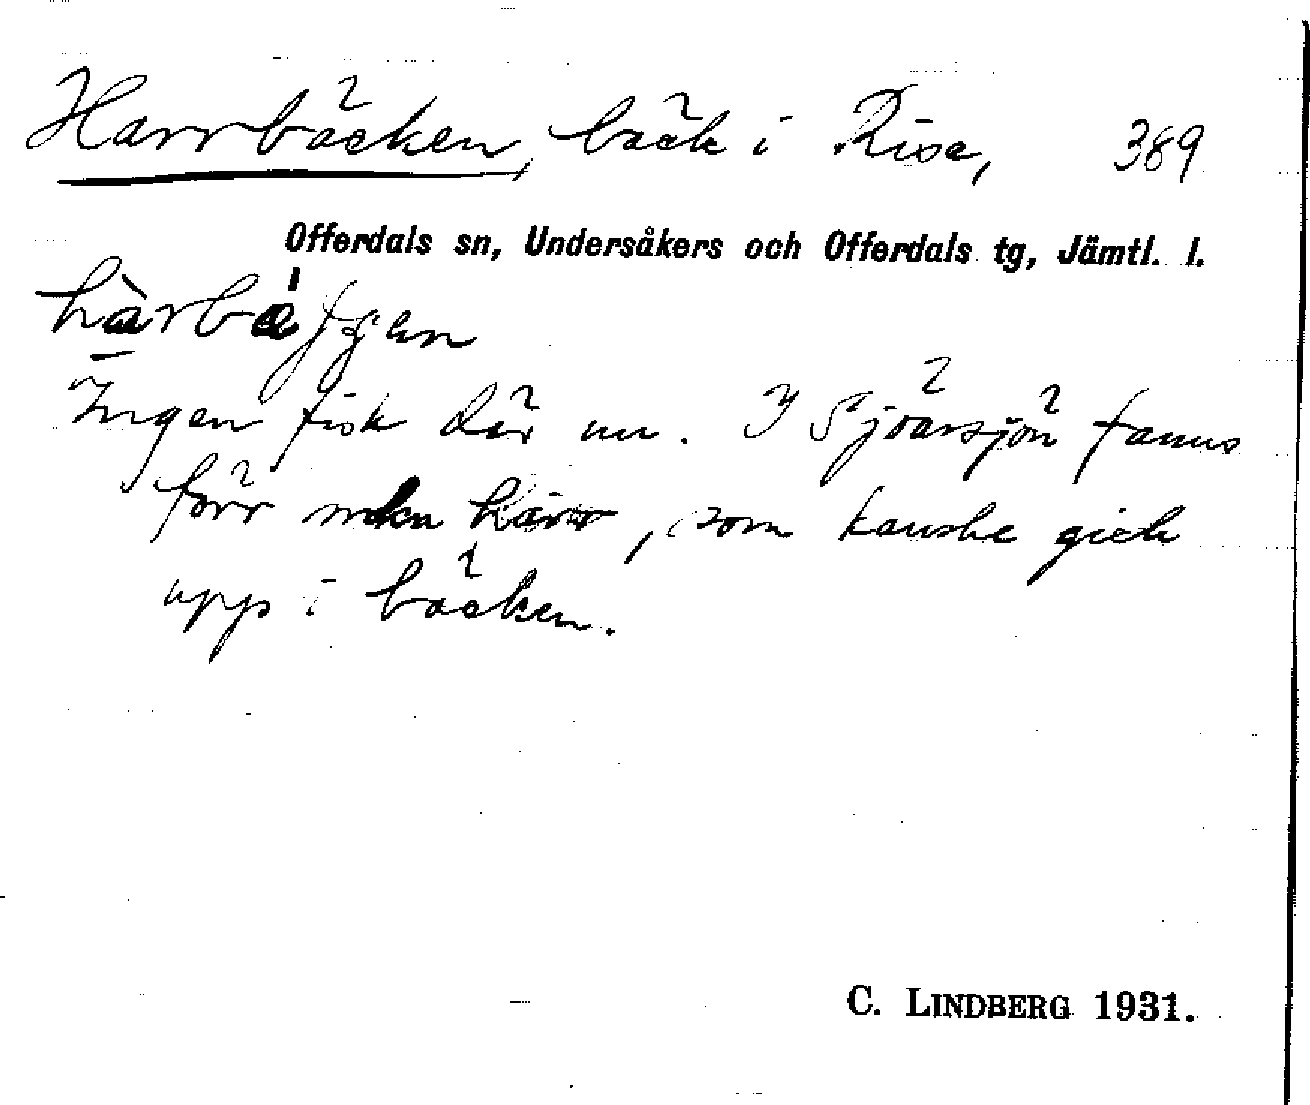 Harrbäcken, bäck i Rise, 389
Offerdals sn, Undersåkers och Offerdals tg, Jämtl. l.
Ingen fisk där nu. I Sjöarsjön fanns
förr harr, som kanske gick
upp i bäcken.
C. LINDBERG 1931.